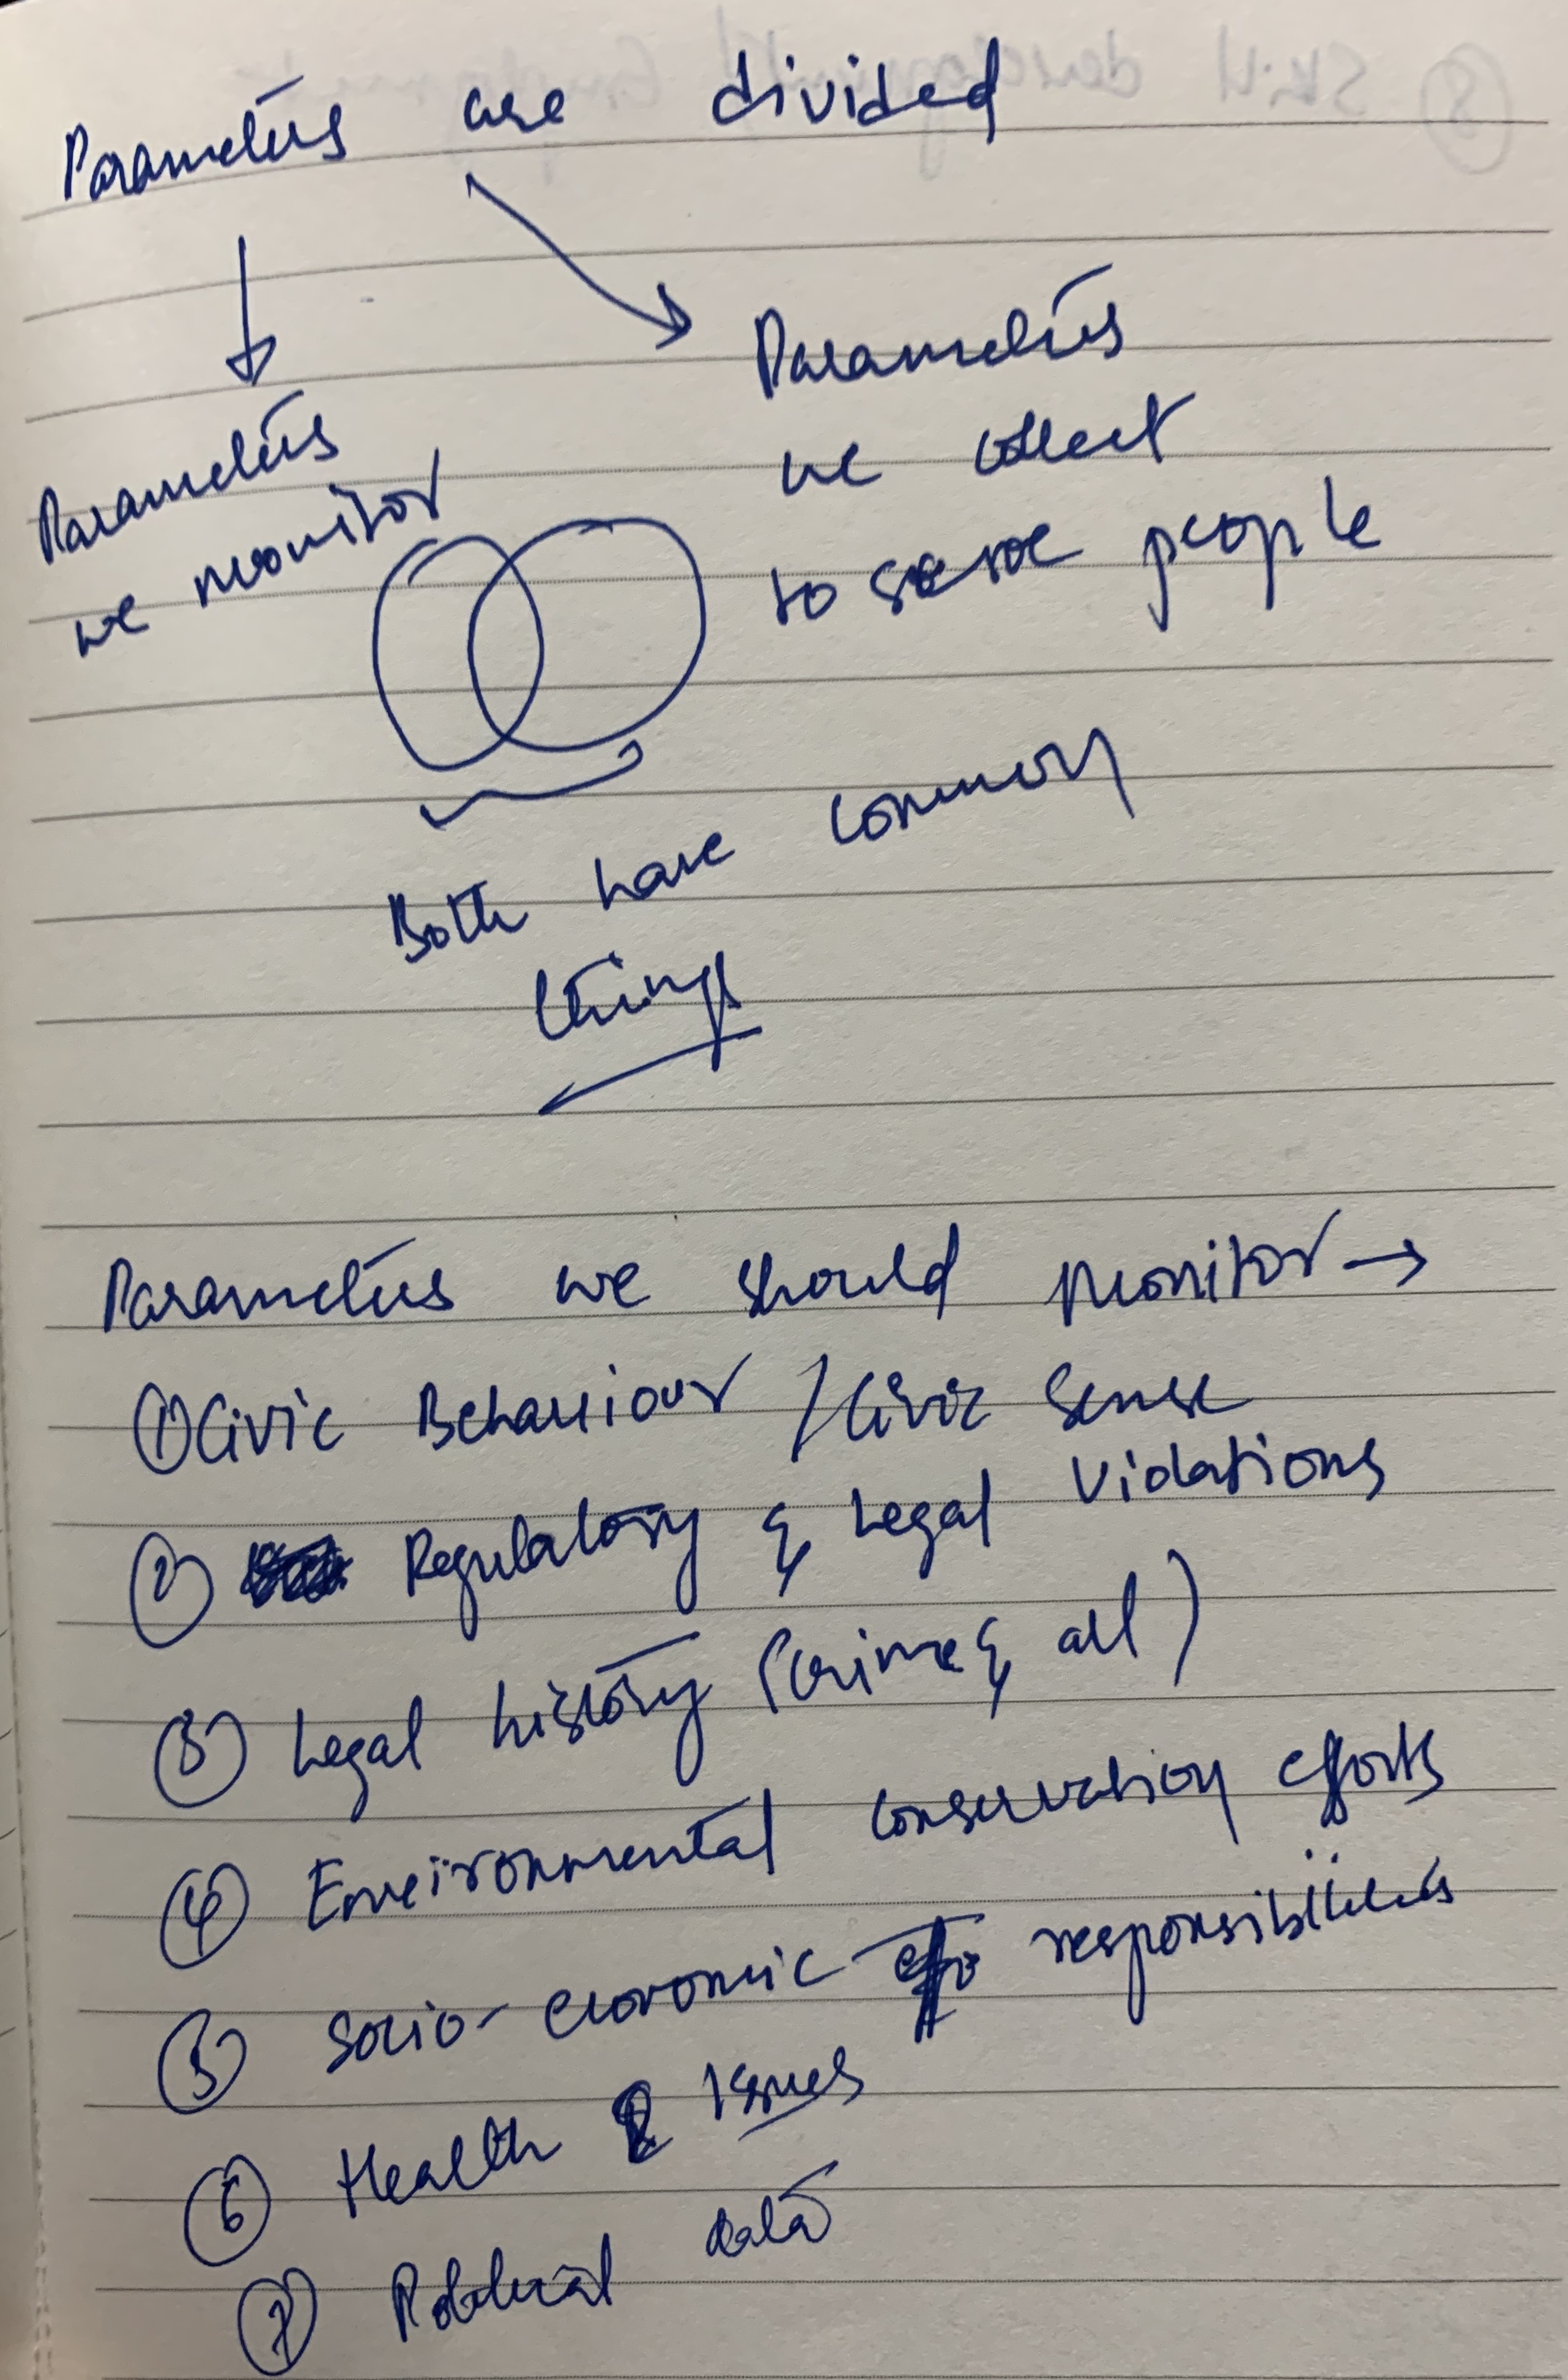 Parameters are divided
Parameters
we monitor
Parameters
we collect
to serve people
Both have common
things
Parameters we should monitor →
① Civic Behaviour / Civic Sense
② Regulatory & Legal Violations
③ Legal history (crime & all)
④ Environmental conservation efforts
⑤ Socio-economic responsibilities
⑥ Health Issues
⑦ Political data
⑧ Skill development